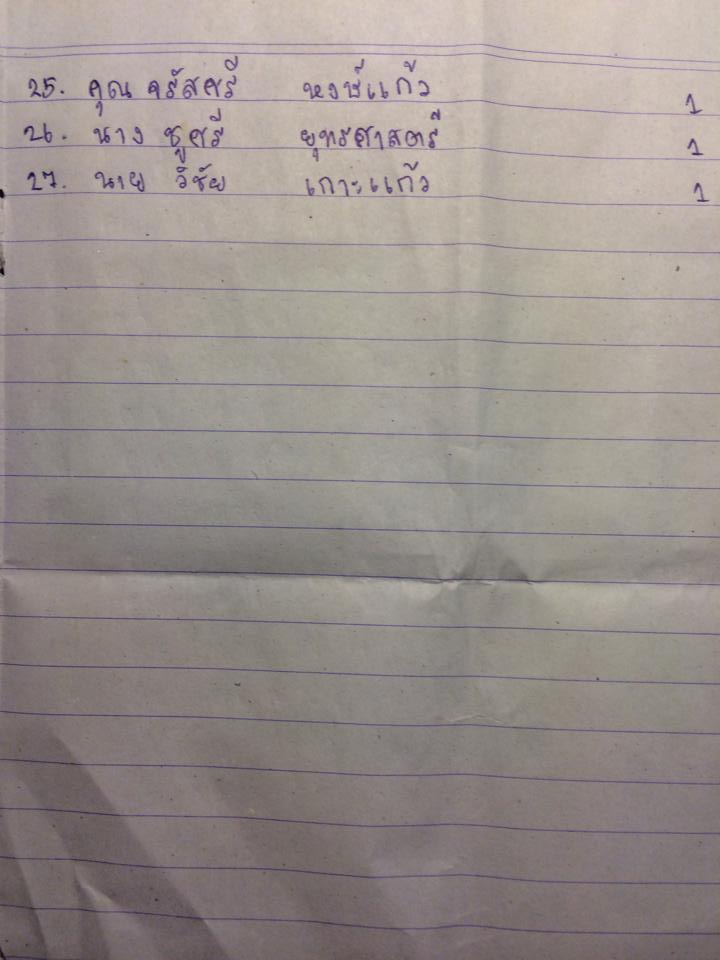 25. คุณ จรัสศรี หงษ์แก้ว 1
26. นาง ชูศรี ยุทธศาสตร์ 1
27. นาย วิชัย เกาะแก้ว 1